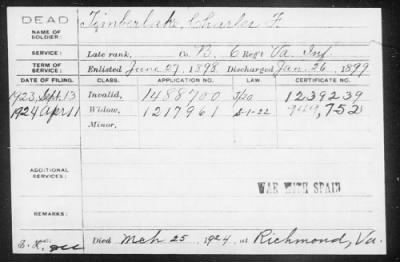 DEAD
NAME OF SOLDIER: Timberlake, Charles F.
SERVICE: Late rank, Co. B, 6 Regt Va. Inf.
TERM OF SERVICE: Enlisted June 27, 1898 Discharged Jan. 26, 1899
DATE OF FILING. CLASS. APPLICATION NO. LAW. CERTIFICATE NO.
1923, Sept. 13 Invalid, 1488700 J/20 1239239
1924 Apr 11 Widow, 1217961 5-1-22 949,752
Minor,
ADDITIONAL SERVICES:
WAR WITH SPAIN
REMARKS:
Died Mch 25, 1924, at Richmond, Va.